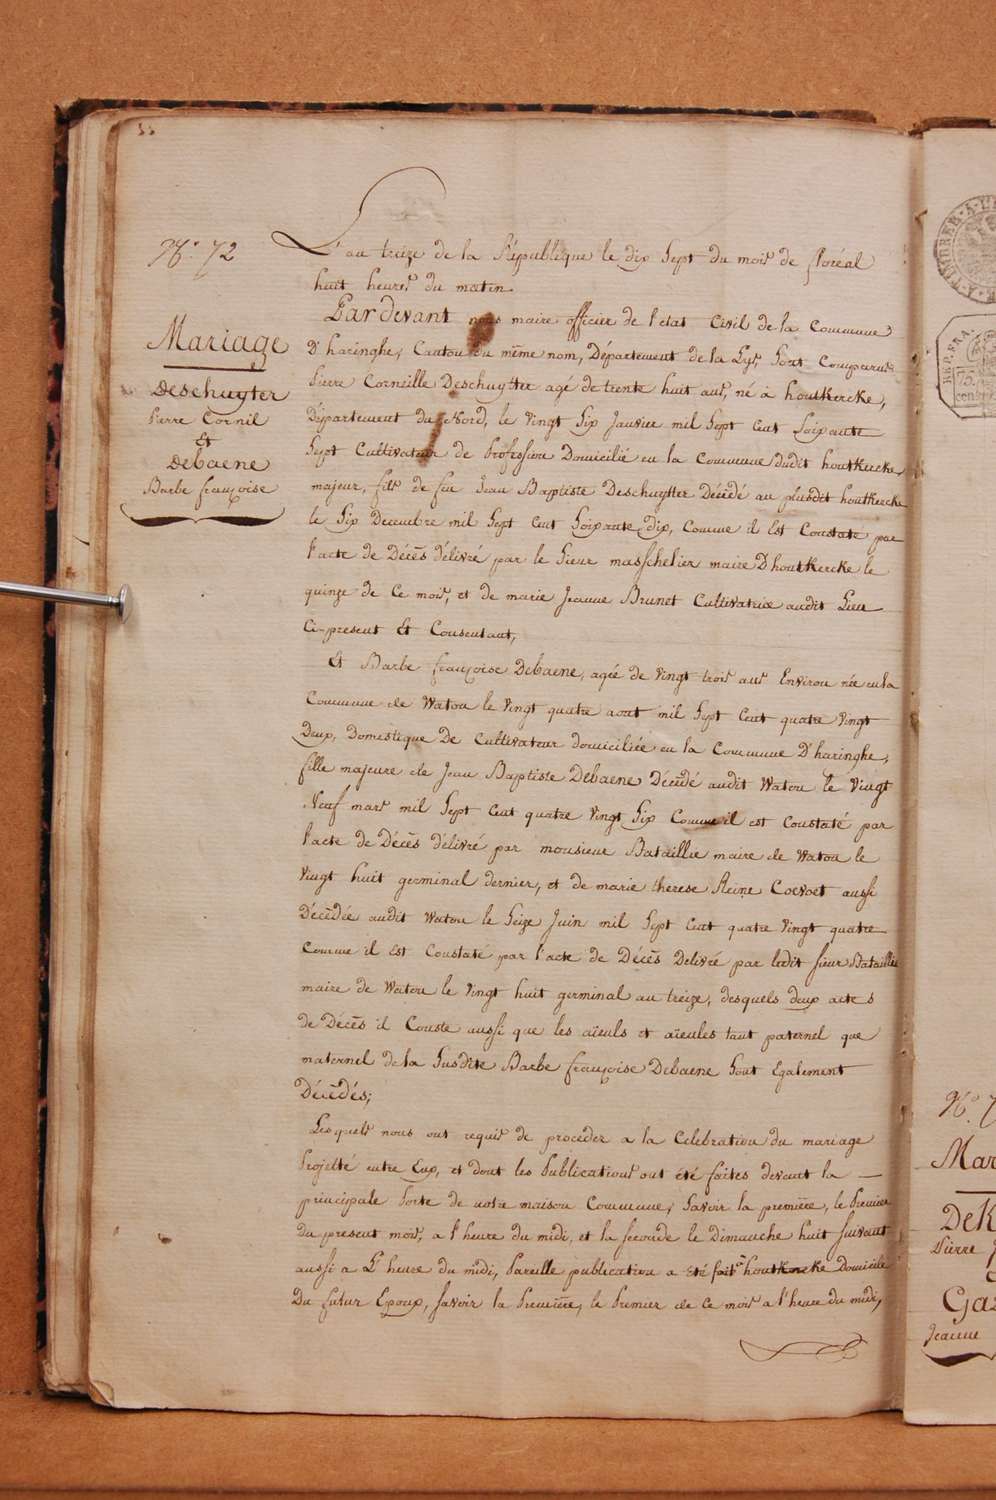 N.° 72
Mariage
Deschuytter
Pierre Cornil
et
Debaene
Barbe françoise
L'an treize de la République le dix Sept du mois de floréal
huit heures du matin
Pardevant nous maire officier de l'état Civil de la Commune
D'haringhe, Canton du même nom, Département de la Lys, Sont Comparus
Pierre Corneille Deschuytter agé de trente huit ans, né à houtkercke,
Département du Nord, le vingt Six Janvier mil Sept Cent Soixante
Sept Cultivateur de Profession Domicilié en la Commune dudit houtkercke
majeur, fils de feu Jean Baptiste Deschuytter Décédé au plusdit houtkercke
le Six Decembre mil Sept Cent Soixante dix, Comme il Est Constaté par
l'acte de Décès délivré par le Sieur masschelier maire D'houtkercke le
quinze de Ce mois, et de marie Jeanne Brunet Cultivatrice audit Lieu
Ci-present Et Consentant,
Et Barbe françoise Debaene, agée de vingt trois ans Environ née en la
Commune de Watou le vingt quatre aout mil Sept Cent quatre vingt
Deux, Domestique De Cultivateur domiciliée en la Commune D'haringhe,
fille majeure de Jean Baptiste Debaene Décédé audit Watou le vingt
Neuf mars mil Sept Cent quatre vingt Six Comme il est Constaté par
l'acte de Décès délivré par monsieur Bataillie maire de Watou le
vingt huit germinal dernier, et de marie therese Reine Coevoet aussi
Décédée audit Watou le Seize Juin mil Sept Cent quatre vingt quatre
Comme il est Constaté par l'acte de Décès Delivré par ledit Sieur Bataillie
maire de Watou le vingt huit germinal an treize, desquels deux actes
de Décès il Conste aussi que les aïeuls et aïeules tant paternel que
maternel de la Susdite Barbe françoise Debaene Sont Egalement
Décédés;
Lesquels nous ont requis de proceder a la Celebration du mariage
Projetté entre Eux, et dont les Publications ont été faites devant la
principale Porte de notre maison Commune, Savoir la première, le Premier
du present mois, a l'heure du midi, et la seconde le Dimanche huit suivant
aussi a L'heure du midi, Pareille publication a été fait à houtkercke Domicile
Du futur Epoux, Savoir la Première, le Premier de ce mois a l'heure du midi,
N.° 7
Mar
DeK
Pierre
Gaz
Jeanne